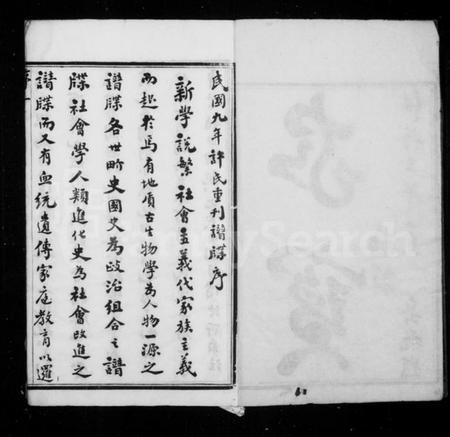 民國九年許氏重刊譜牒序
新學說繁社會主義代家族主義
而起於焉有地質古生物學為人物一源之
譜牒各世斷史國史為政治組合之譜
牒社會學人類進化史為社會改進之
譜牒而又有血統遺傳家庭教育以邏